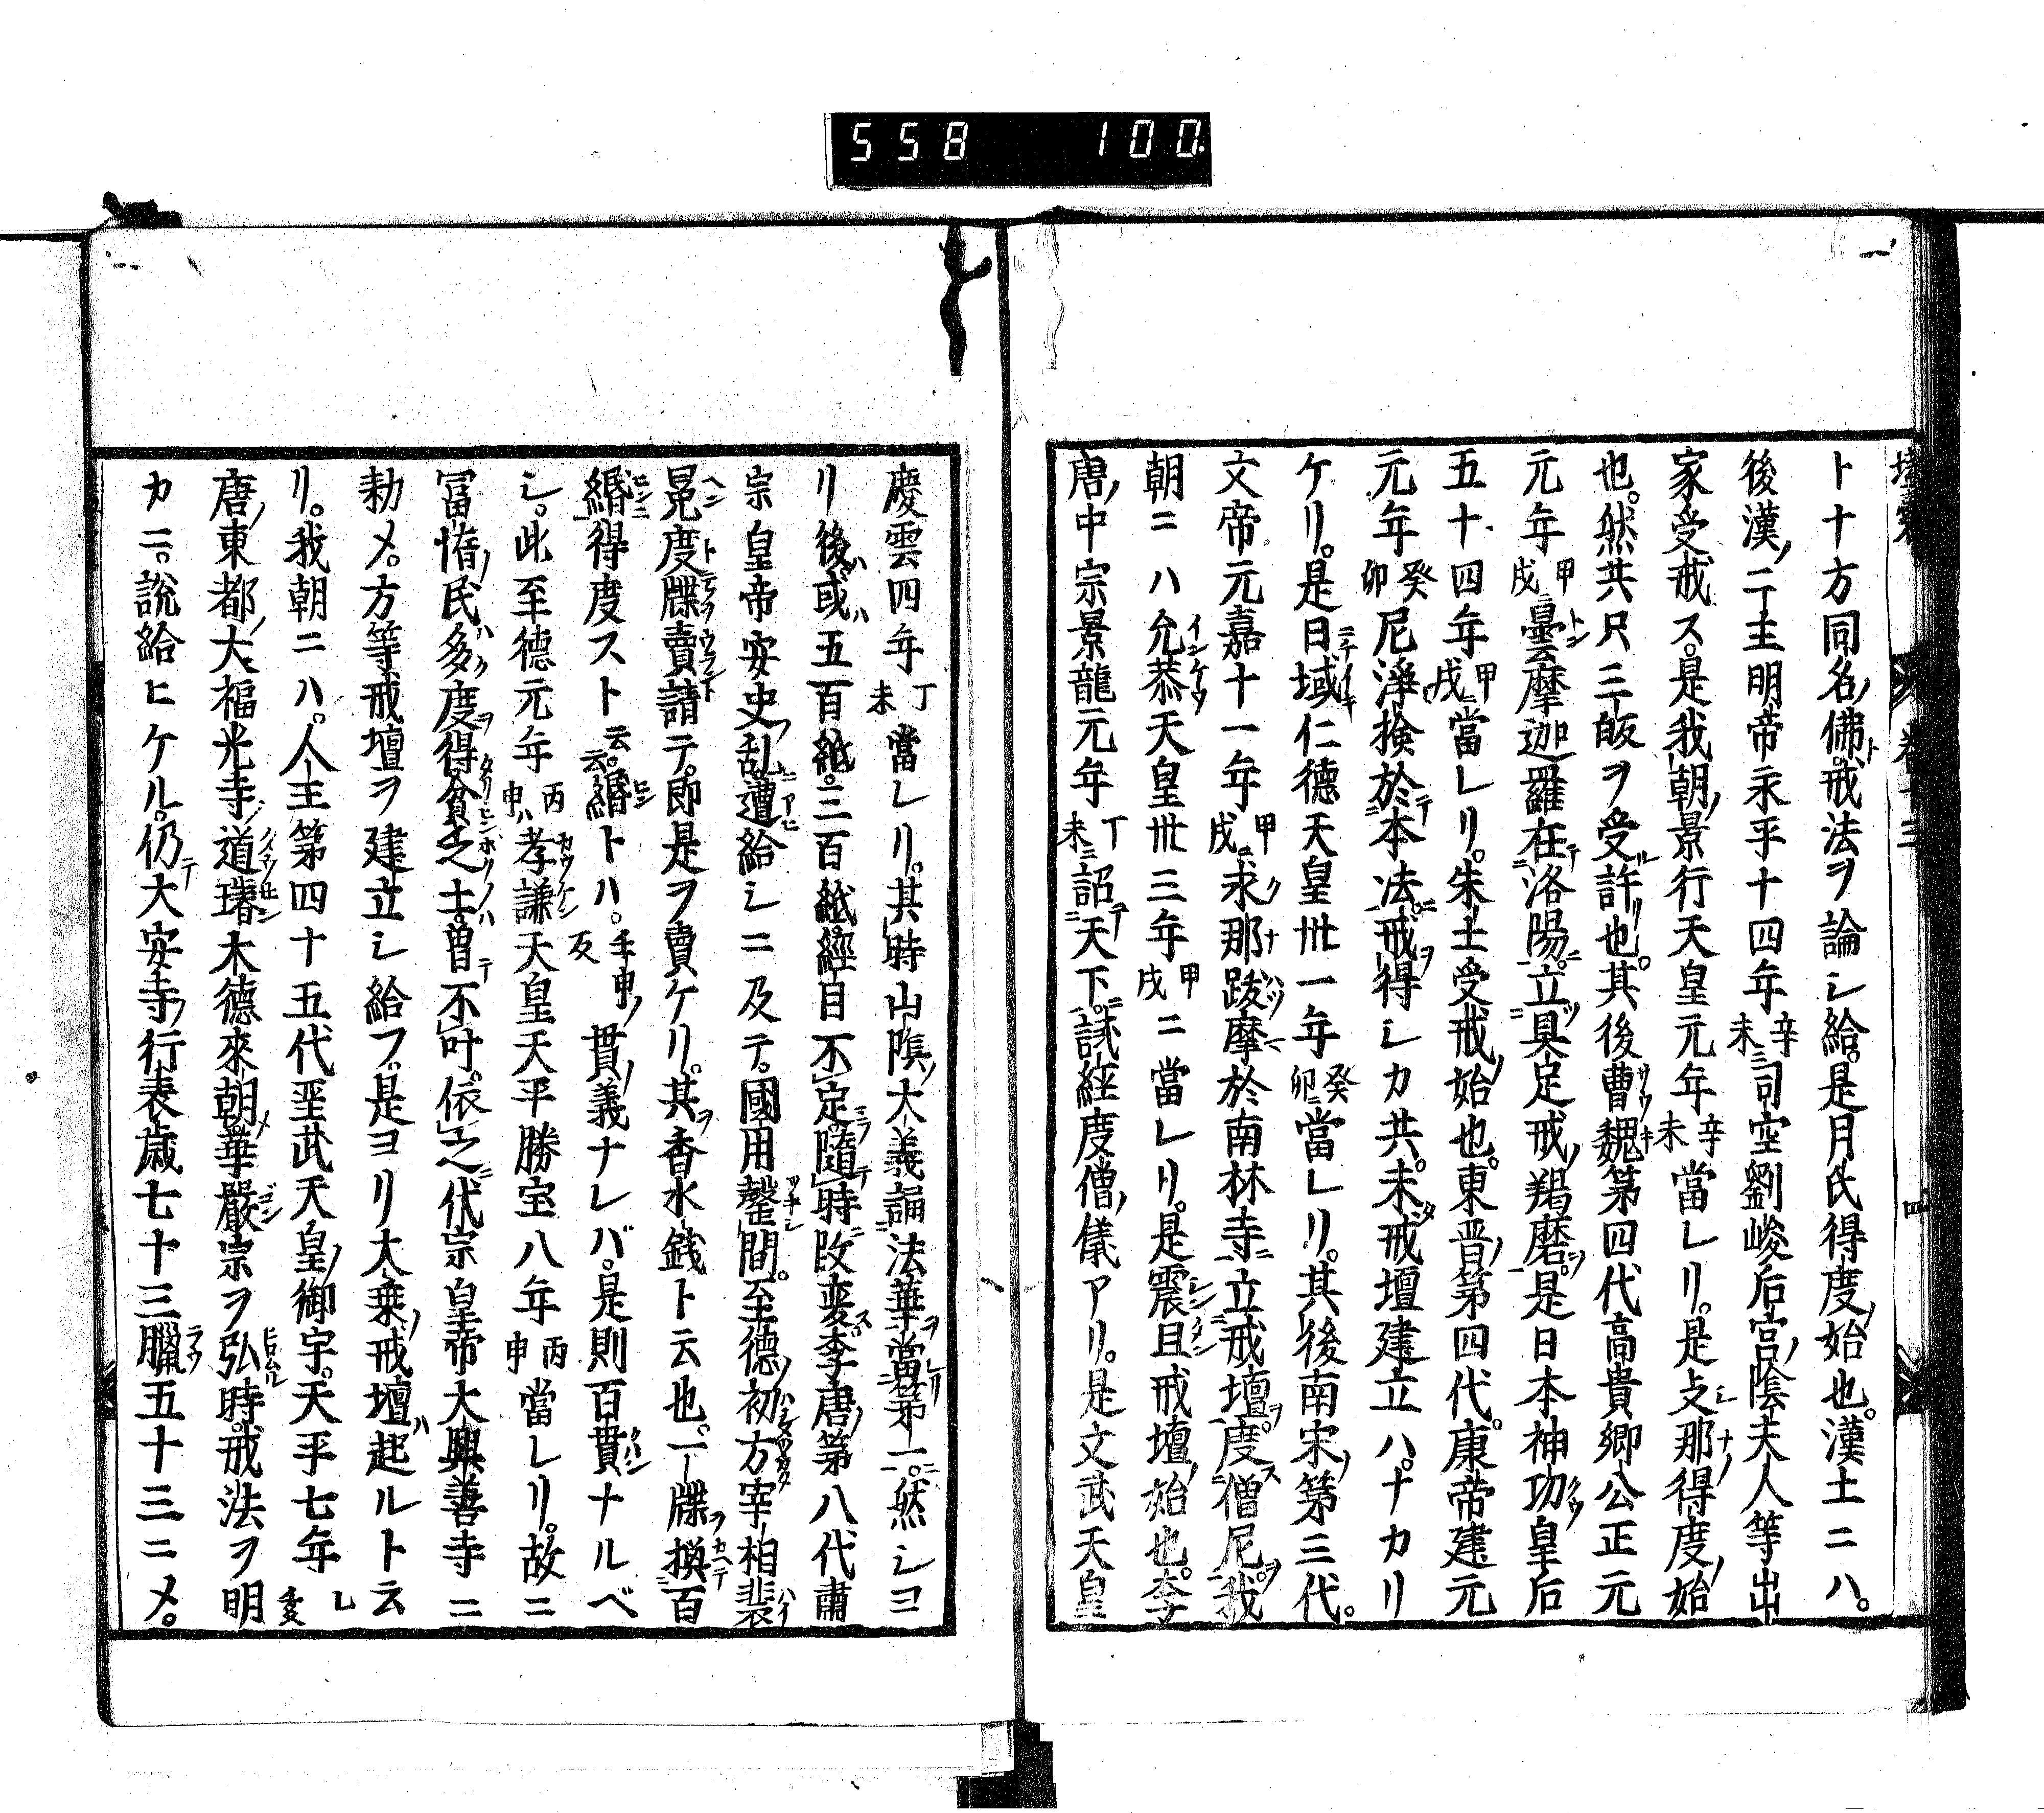 558 100.
卷十三 四
ト十方同名ノ佛ト。戒法ヲ論シ給。是月氏得度ノ始也。漢土ニハ。
後漢ノ二主明帝永平十四年辛未ニ司空劉峻后宮ノ陰夫人等出
家受戒ス。是我朝ノ景行天皇元年辛未當レリ。是支那ノ得度ノ始
也。然共只三皈ヲ受許也。其後曹魏第四代高貴卿公正元
元年甲戌ニ曇摩迦羅在テ洛陽ニ。立具足戒ノ羯磨ヲ。是日本神功皇后
五十四年甲戌ニ當レリ。朱士受戒ノ始也。東晋ノ第四代。康帝建元
元年癸卯尼淨撿於テ本法ニ。戒ヲ得シカ共。未タ戒壇建立ハ。ナカリ
ケリ。是日域仁德天皇卅一年癸卯ニ當レリ。其後南宋ノ第三代。
文帝元嘉十一年甲戌ニ求那跋摩於南林寺ニ立戒壇ヲ。度ス僧尼ヲ。我
朝ニハ允恭天皇卅三年甲戌ニ當レリ。是震旦ニ戒壇ノ始也。李
唐ノ中宗景龍元年丁未ニ詔テ天下ニ。試經度僧ノ儀アリ。是文武天皇
慶雲四年丁未當レリ。其時山陰ノ大義誦法華ヲ當レリ第一ニ。然シヨ
リ後ハ或ハ五百紙。三百紙經目不定。隨テ時ニ改変ス。李唐ノ第八代肅
宗皇帝安史ノ乱ニ遭給シニ及テ。國用罄間。至德ノ初方宰相裴
冕度牒賣請テ。即是ヲ賣ケリ。其ヲ香水銭ト云也。一牒ヲ換百
緡得度ストト云云。緡トハ。
シ。此至德元年丙申ハ孝謙天皇天平勝宝八年丙申當レリ。故ニ
冨惰ノ民ハ多ク度ヲ得貧乏ノ士ハ。曽テ不叶。依之ニ代宗皇帝大興善寺ニ
勅メ。方等戒壇ヲ建立シ給フ。是ヨリ大乗ノ戒壇ハ起ルト云
リ。我朝ニハ。人主第四十五代聖武天皇ノ御宇。天平七年乙亥
唐ノ東都ノ大福光寺ノ道璿木德來朝メ。華嚴宗ヲ弘時。戒法ヲ明
カニ。説給ヒケル。仍テ大安寺ノ行表歳七十三臘五十三ニメ。